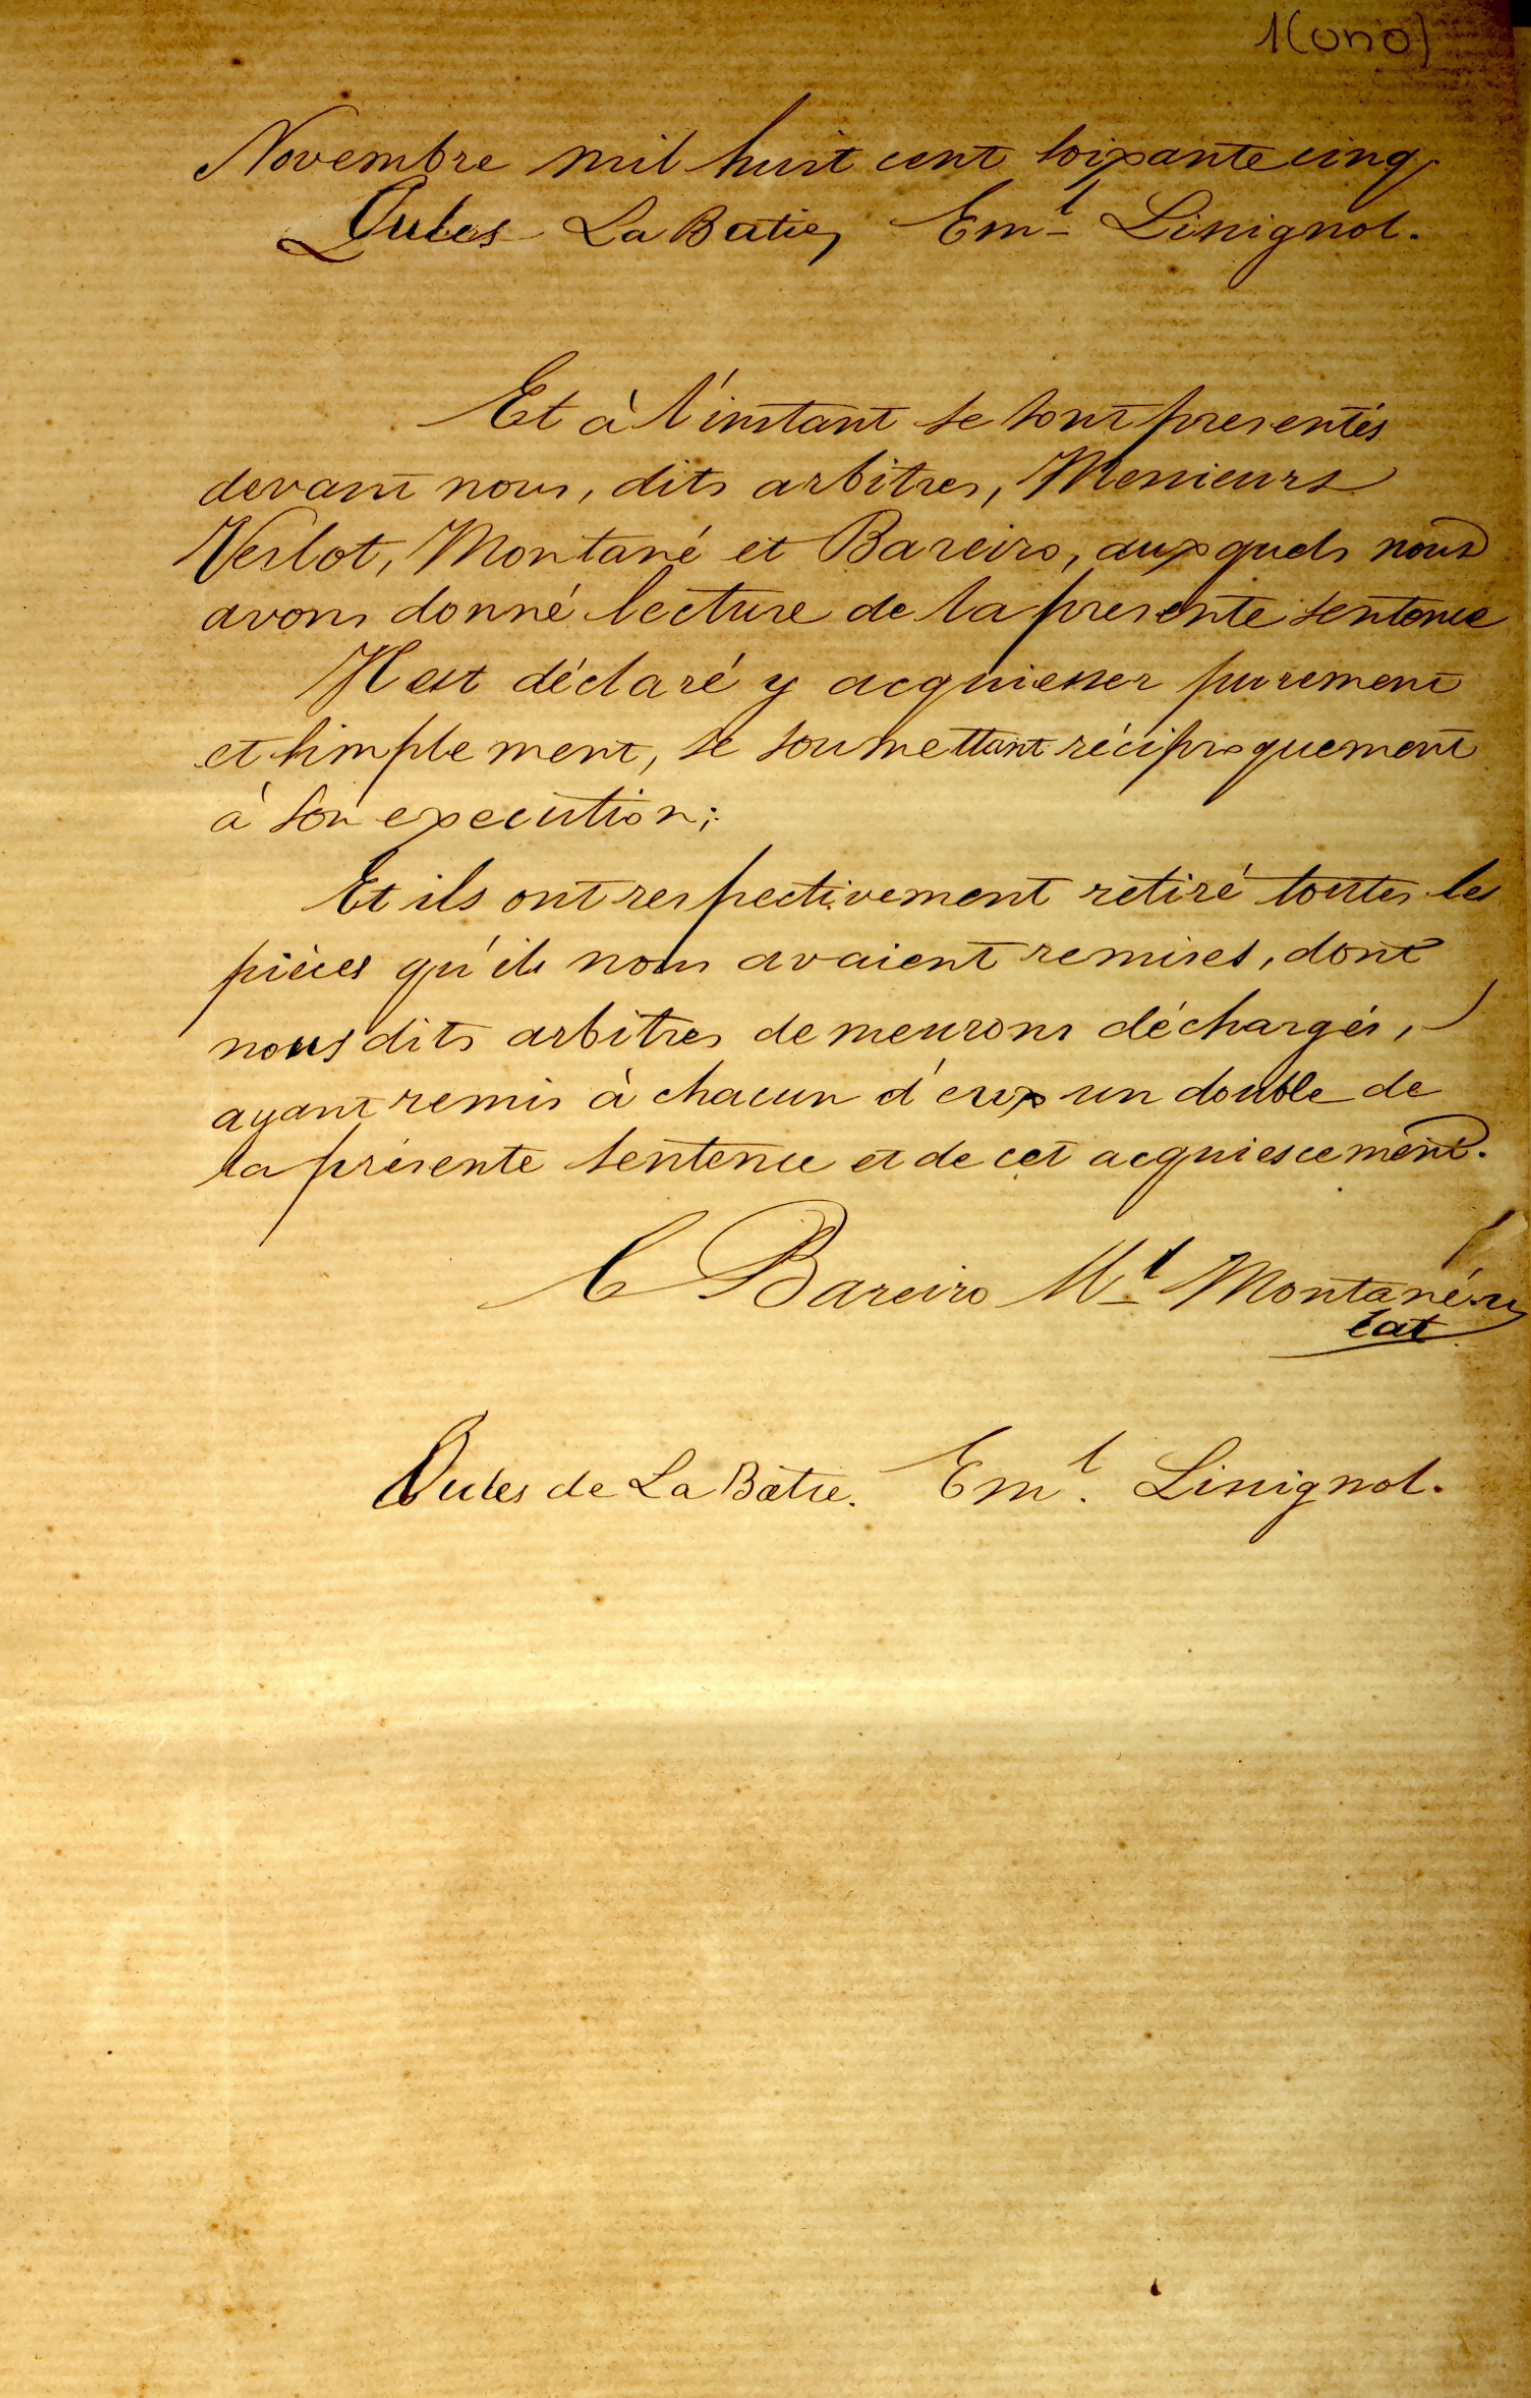 1(uno)
Novembre mil huit cent soixante cinq
Jules La Batie, Em.t Linignol.
Et à l'instant se sont presentés
devant nous, dits arbitres, Messieurs
Verlot, Montané et Bareiro, auxquels nous
avons donné lecture de la présente sentence
Il est déclaré y acquiesser purement
et simplement, se soumettant réciproquement
à son execution;
Et ils ont respectivement retiré toutes les
pièces qu'ils nous avaient remises, dont
nous dits arbitres demeurons déchargés,
ayant remis à chacun d'eux un double de
la présente sentence et de cet acquiescement.
C Bareiro M.t Montané
Jules de La Bâtie. Em.t Linignol.